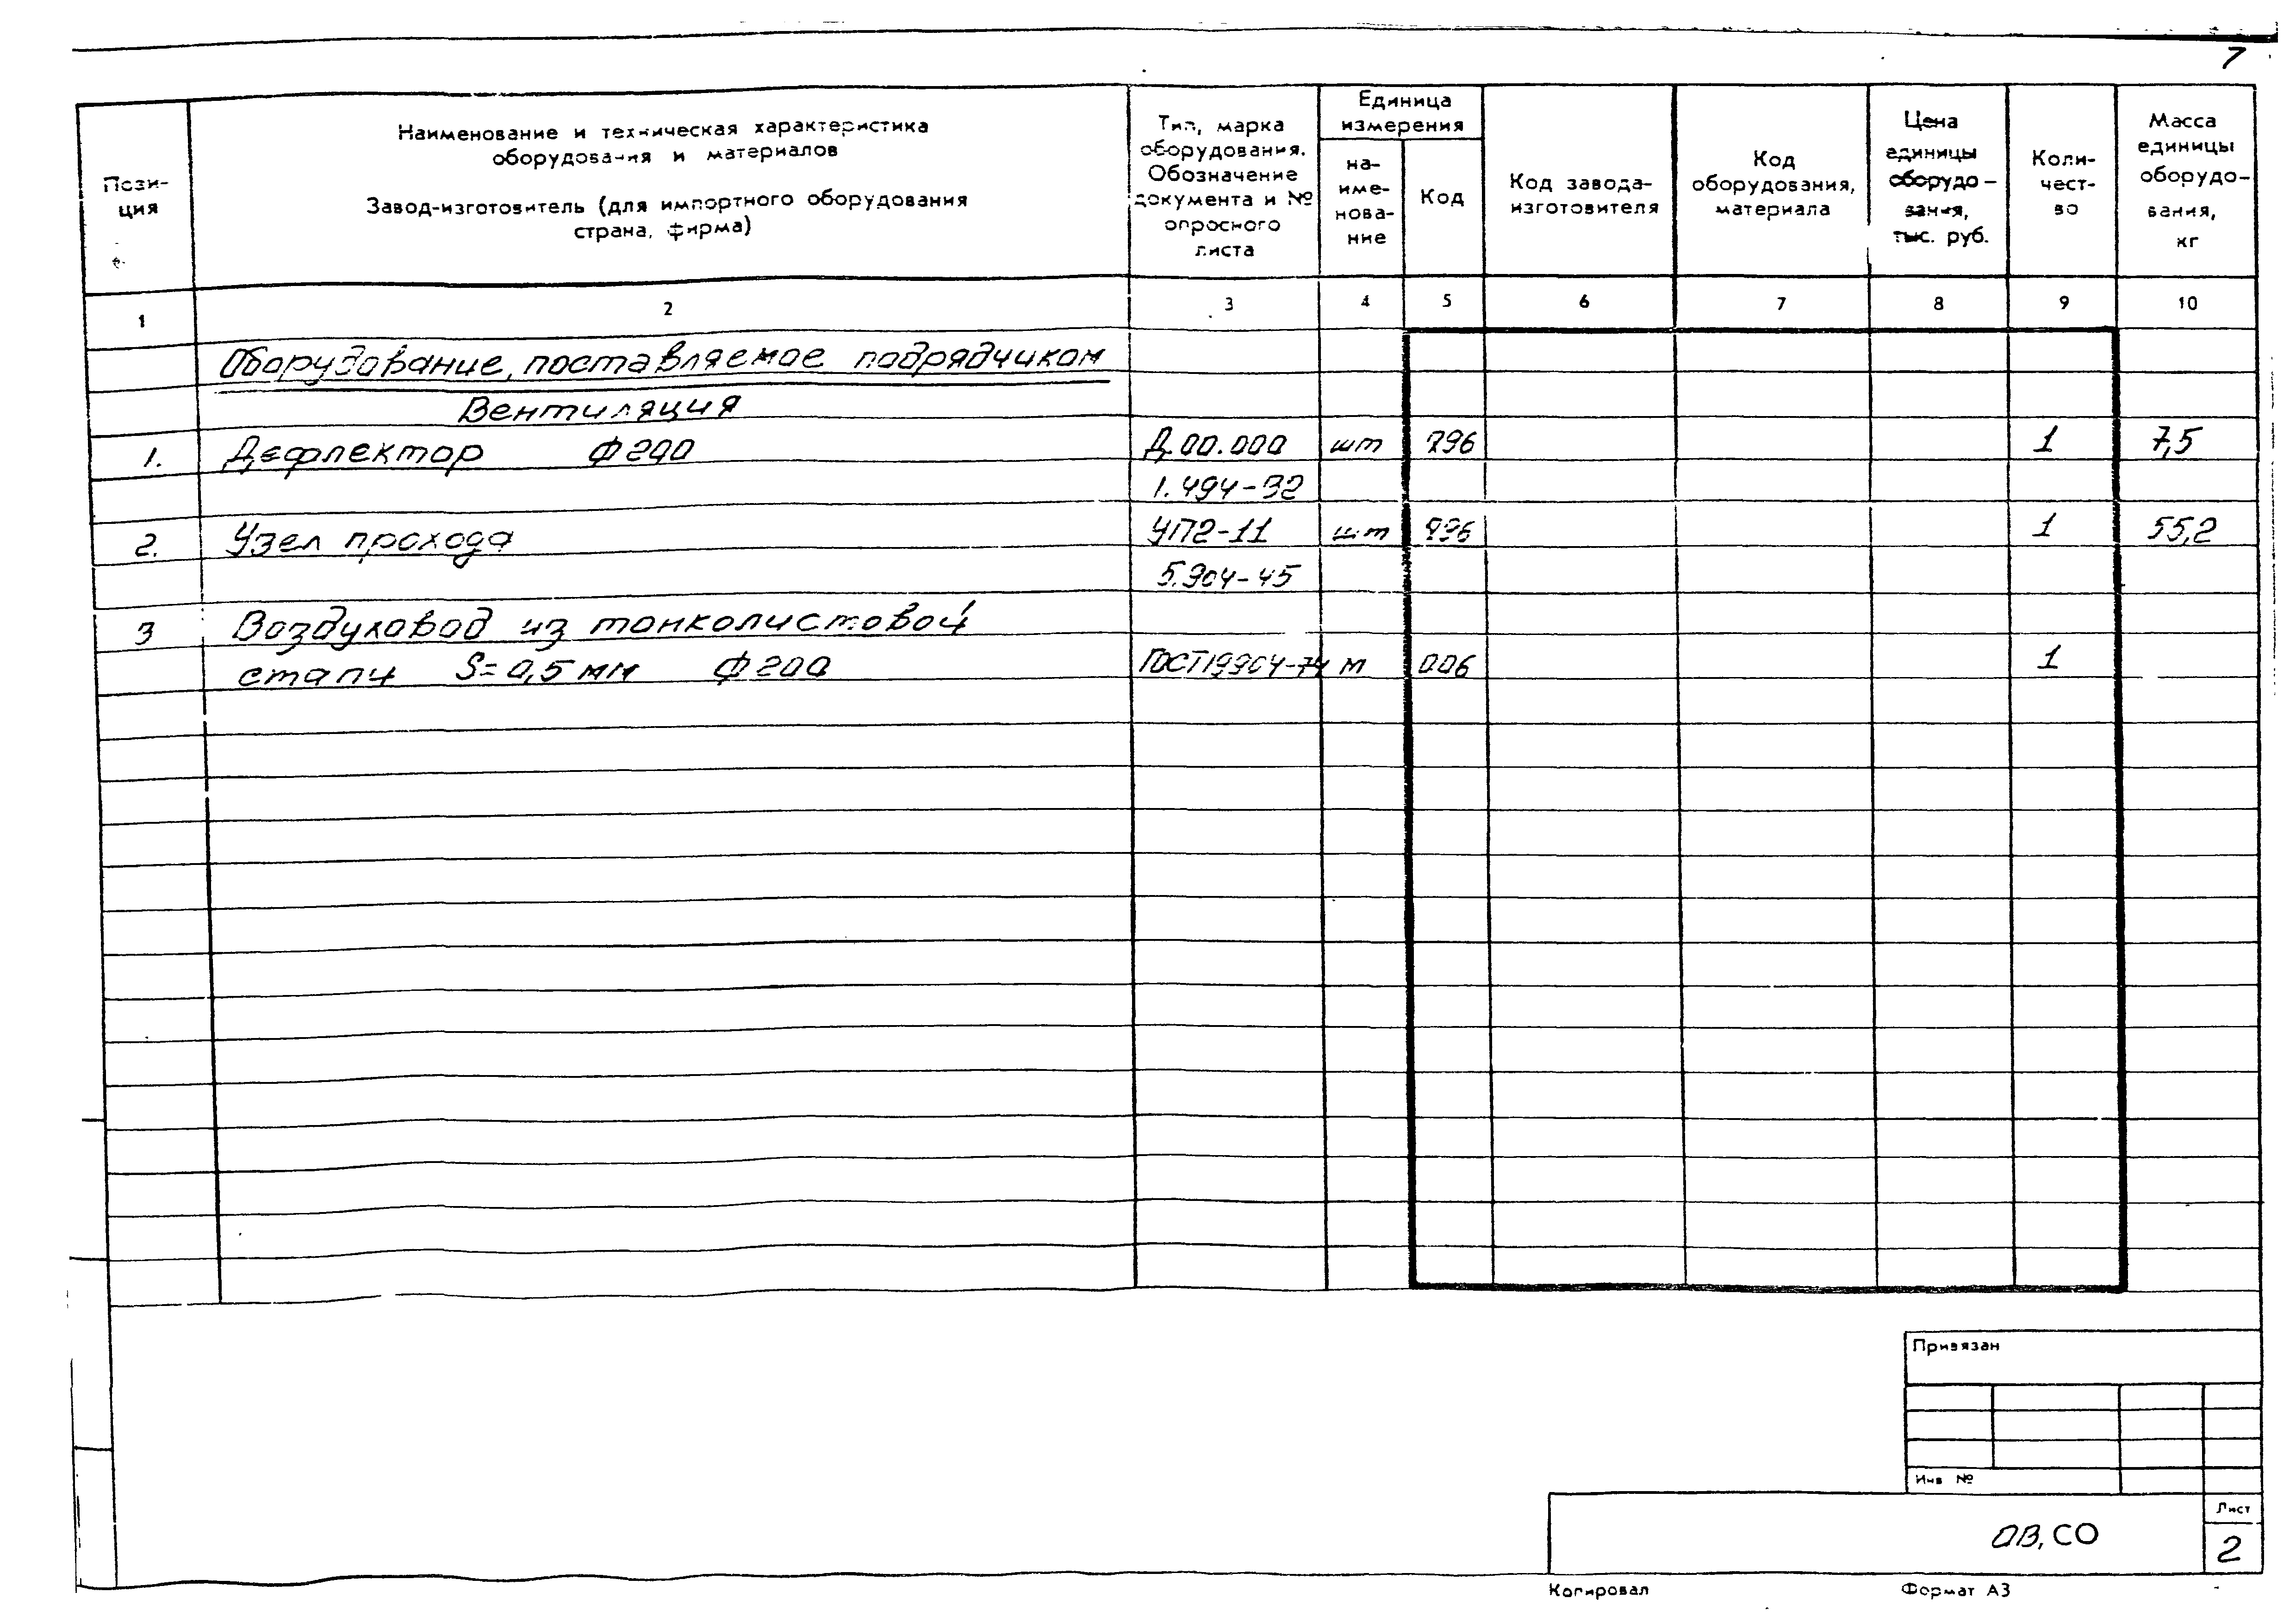 7
Пози-
ция
Наименование и техническая характеристика
оборудования и материалов
Завод-изготовитель (для импортного оборудования
страна, фирма)
Тип, марка
оборудования.
Обозначение
документа и №
опросного
листа
Единица
измерения
на-
име-
нова-
ние
Код
Код завода-
изготовителя
Код
оборудования,
материала
Цена
единицы
оборудо-
вания,
тыс. руб.
Коли-
чест-
во
Масса
единицы
оборудо-
вания,
кг
1 2 3 4 5 6 7 8 9 10
Оборудование, поставляемое подрядчиком
Вентиляция
1. Дефлектор Ф200 Д.00.000 шт 796 1 7,5
1.494-32
2. Узел прохода УП2-11 шт 796 1 55,2
5.904-45
3 Воздуховод из тонколистовой
стали S=0,5 мм Ф200 ГОСТ19904-74 м 006 1
Привязан
Инв №
ОВ, СО
Лист
2
Копировал Формат А3